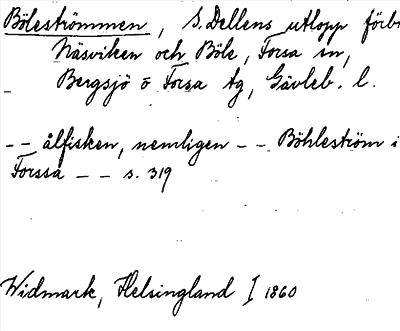 Böleströmmen, S. Dellens utlopp förb
Näsviken och Böle, Forsa sn,
Bergsjö o Forsa tg, Gävleb. l.
-- ålfisken, nemligen -- Böhleström i
Forssa -- s. 319
Widmark, Helsingland I 1860